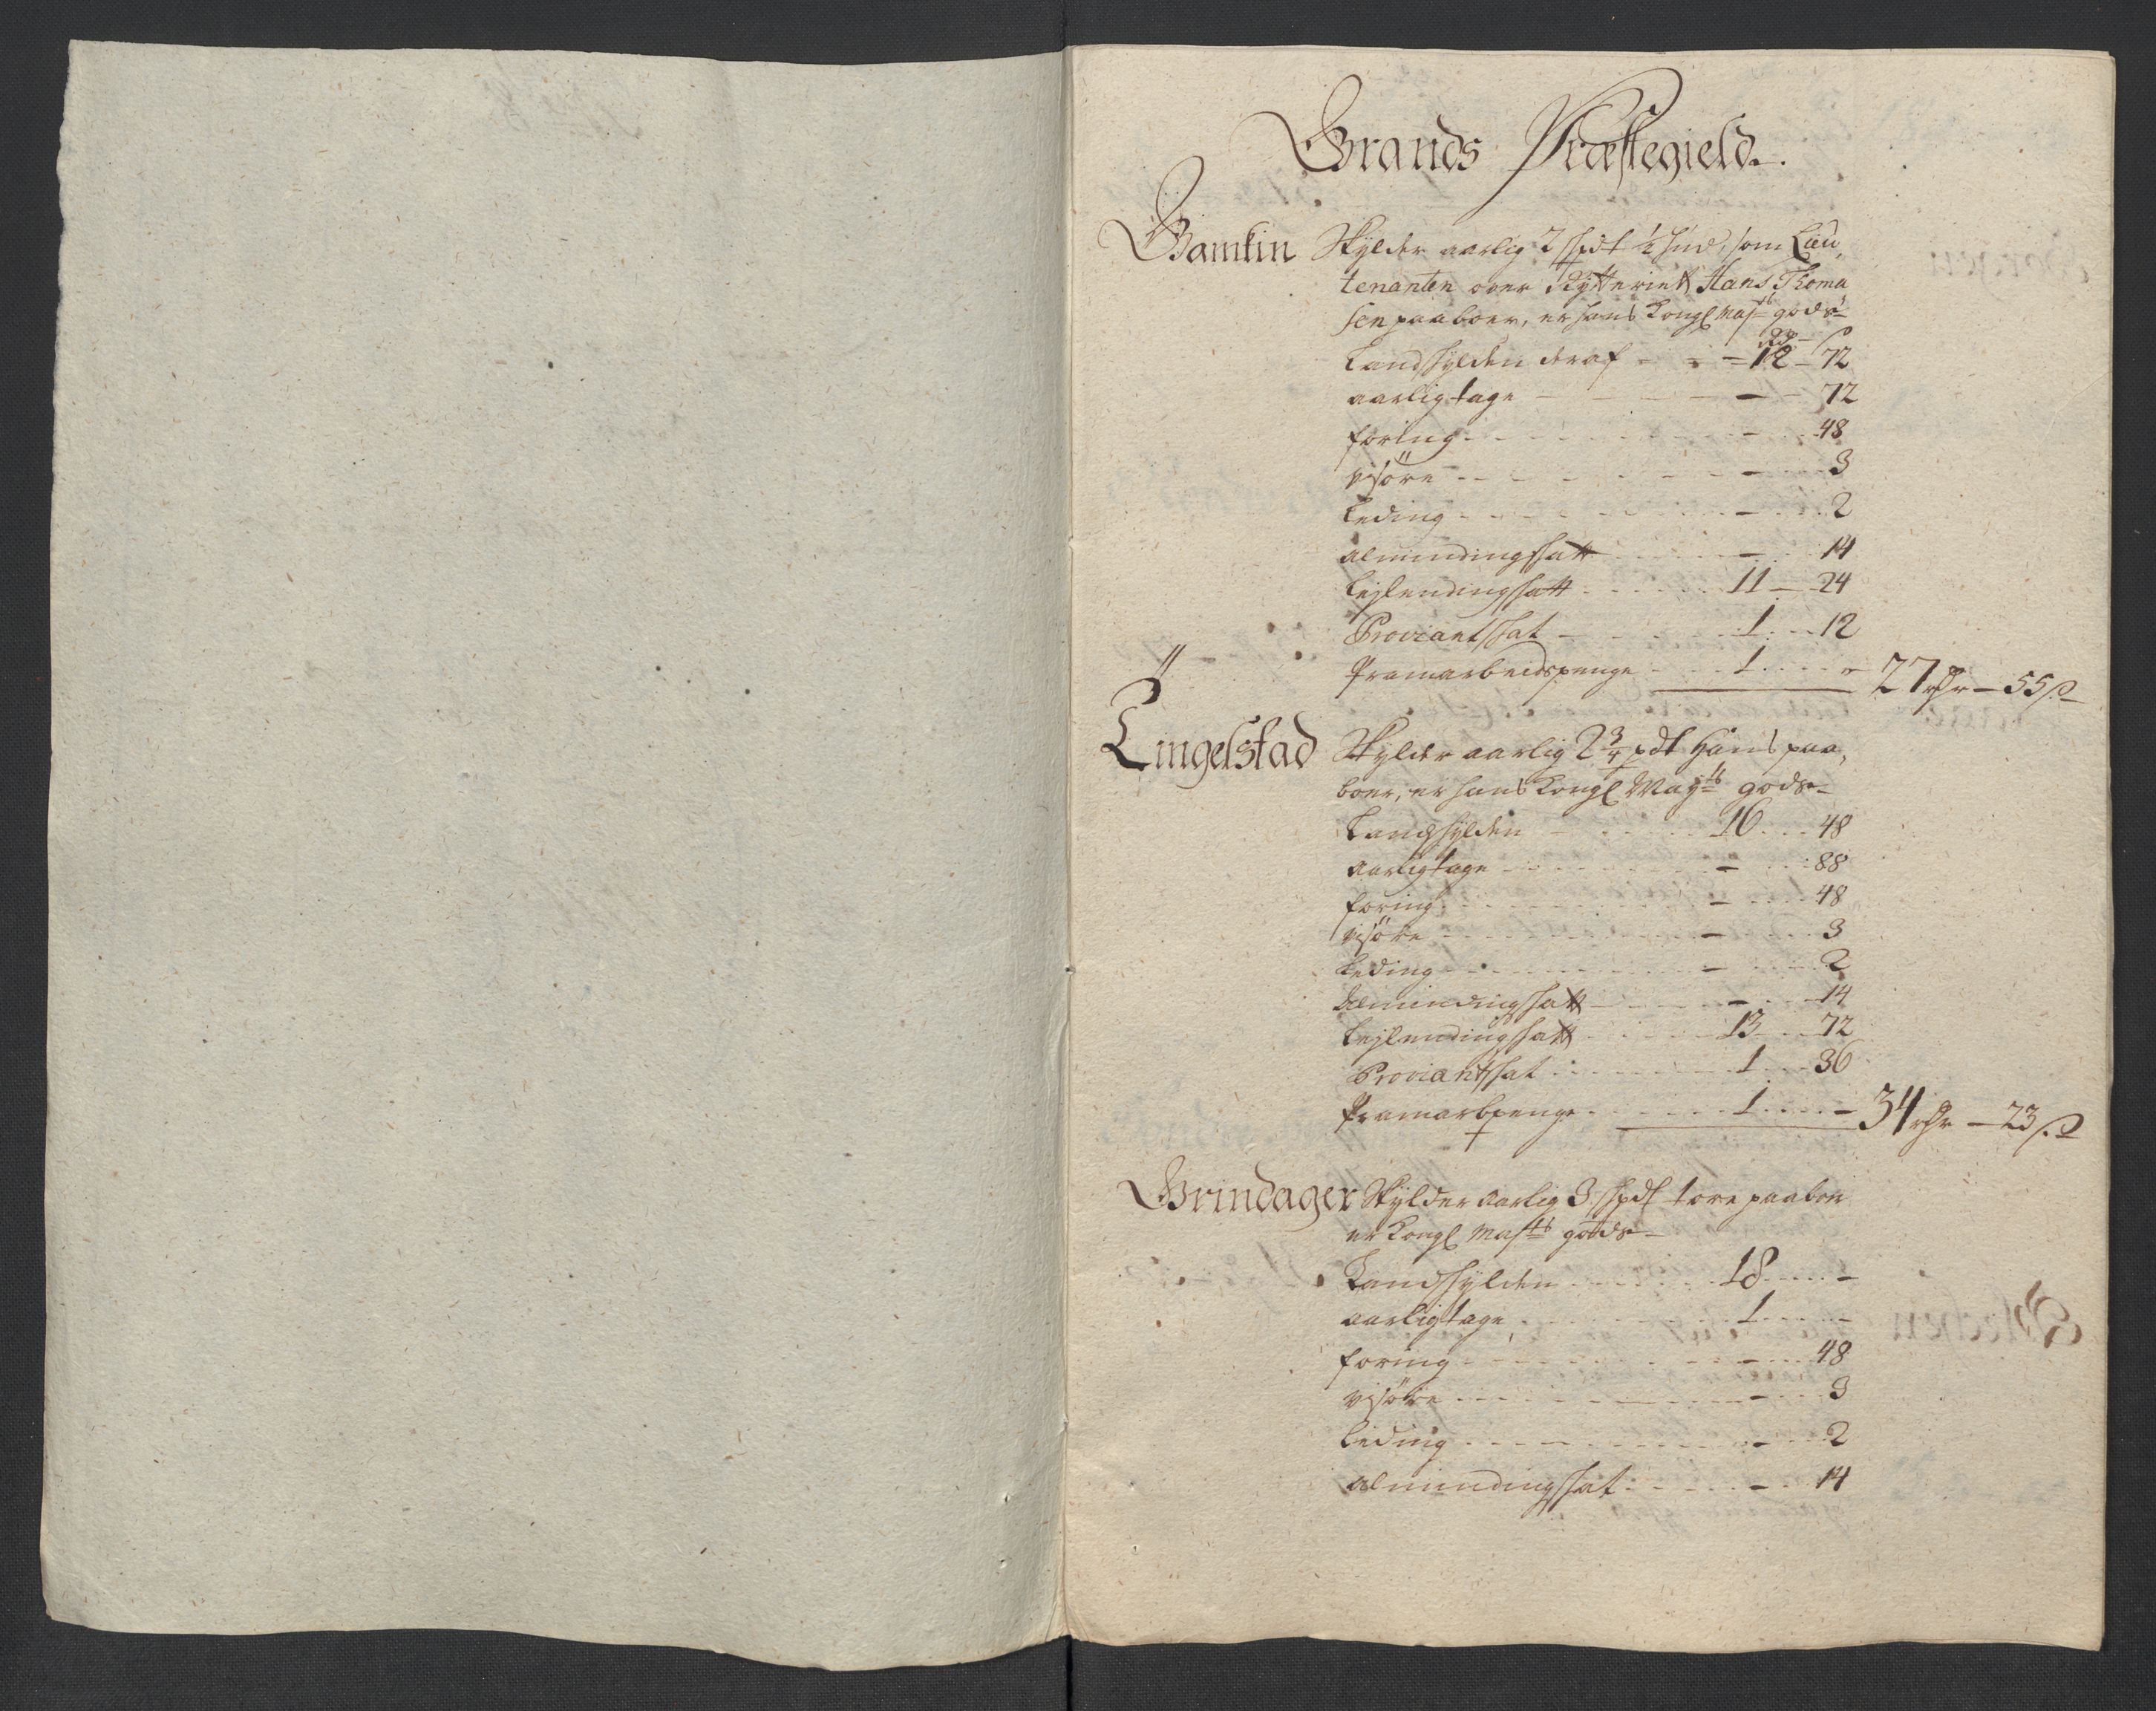 Grands Præstegield.
Gamkin Skylder aarlig 2 skpdt ½ hud, som Lieu,
tenanten over Rytteriett Hans Thoma
sen paaboer, er hans Kongl Mayts gods
Rd - s
Landskylden deraf - - - 12 - 72
aarligtage - - - 72
foring - - - 48
visöre - - - 3
Leding - - - 2
almindingskatt - - - 14
Lejlendingskatt - - - 11 - 24
Proviantskat - - - 1 - 12
Framarbeidspenge - - - 1 - - 27 rdr - 55 s
Lingelstad Skylder aarlig 2¾ pdt Hans paa,
boer, er hans Kongl Mayts gods
Landskylden - - - 16 - 48
aarligtage - - - 88
foring - - - 48
visöre - - - 3
Leding - - - 2
Almindingskatt - - - 14
Lejlendingskatt - - - 13 - 72
Proviantskat - - - 1 - 36
Framarbpenge - - - 1 - - 34 rdr - 23 s
Grindager Skylder aarlig 3 skpdt tore paaboer
er Kongl Mayts gods
Landskylden - - - 18 - -
aarligtage - - - 1 - -
foring - - - 48
visöre - - - 3
Leding - - - 2
almindingskat - - - 14